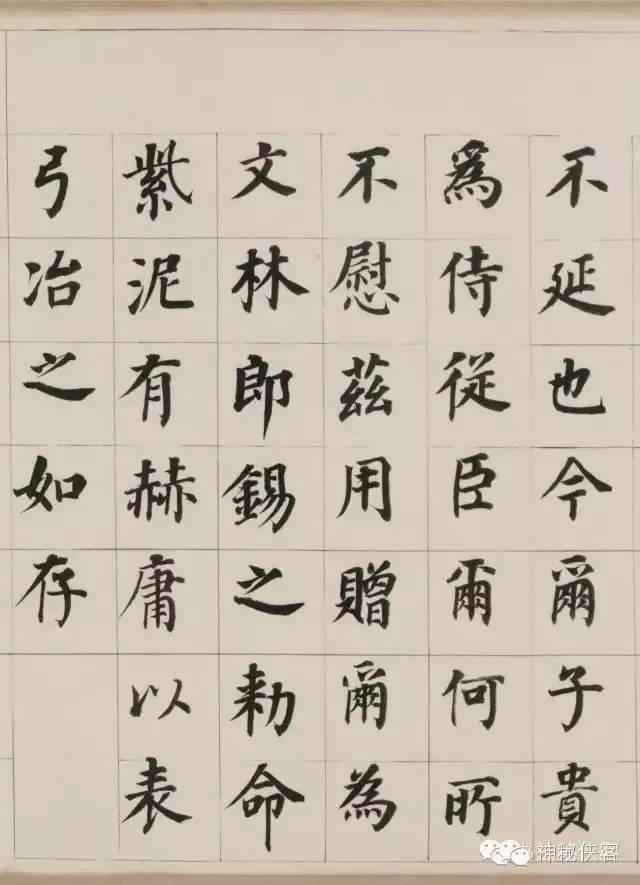 不延也今爾子貴
為侍從臣爾何所
不慰茲用贈爾為
文林郎錫之勅命
紫泥有赫庸以表
弓冶之如存
神秘侠客